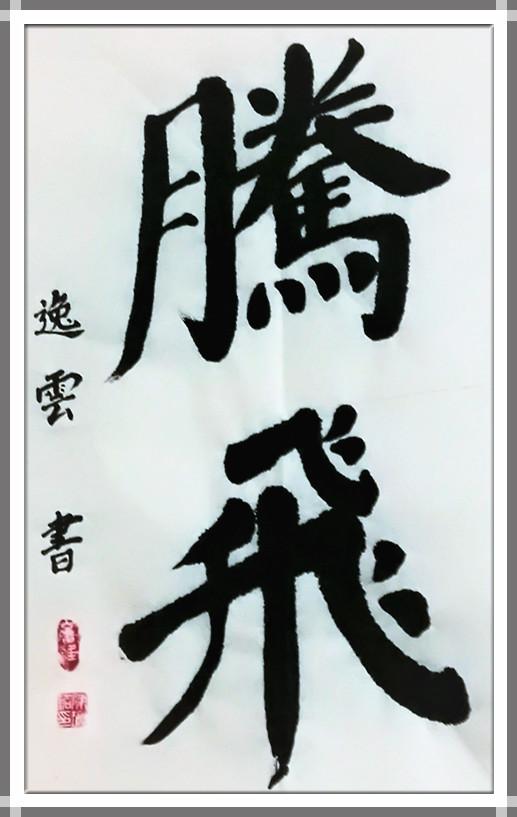 騰飛
逸雲 書